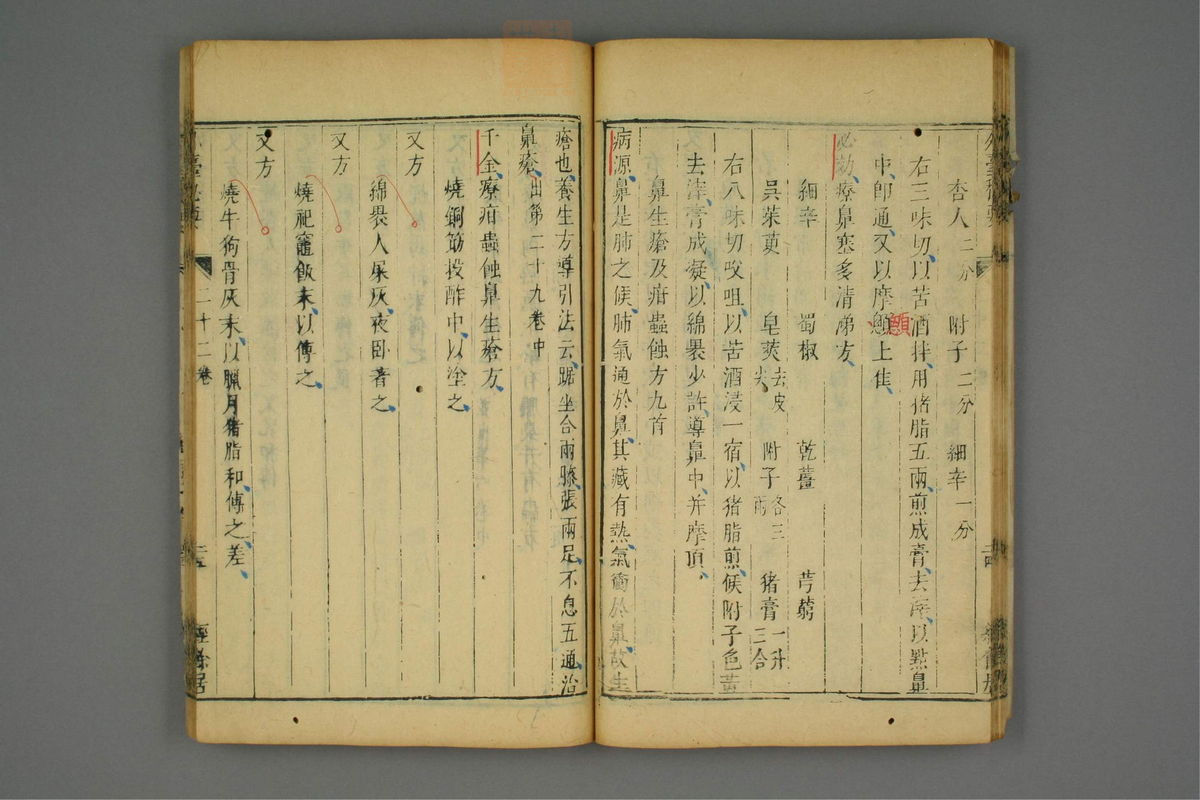 杏人二分　附子二分　細辛一分
右三味切以苦酒拌用猪脂五兩煎成膏去滓以點鼻
中即通又以摩顖上佳
顖
必効療鼻塞多清涕方
細辛　蜀椒　乾薑　芎藭
吳茱萸　皂莢去皮尖　附子各三兩　猪膏一升三合
右八味切㕮咀以苦酒浸一宿以猪脂煎候附子色黃
去滓膏成凝以綿裹少許導鼻中并摩頂
鼻生瘡及疳蟲蝕方九首
病源鼻是肺之候肺氣通於鼻其藏有熱氣衝於鼻故生
瘡也養生方導引法云踞坐合兩膝張兩足不息五通治
鼻瘡出第二十九卷中
千金療疳蟲蝕鼻生瘡方
燒銅筯投酢中以塗之
又方
綿裹人屎灰夜卧著之
又方
燒祀竈飯末以傅之
又方
燒牛狗骨灰末以臘月猪脂和傅之差
二十二卷
經餘居